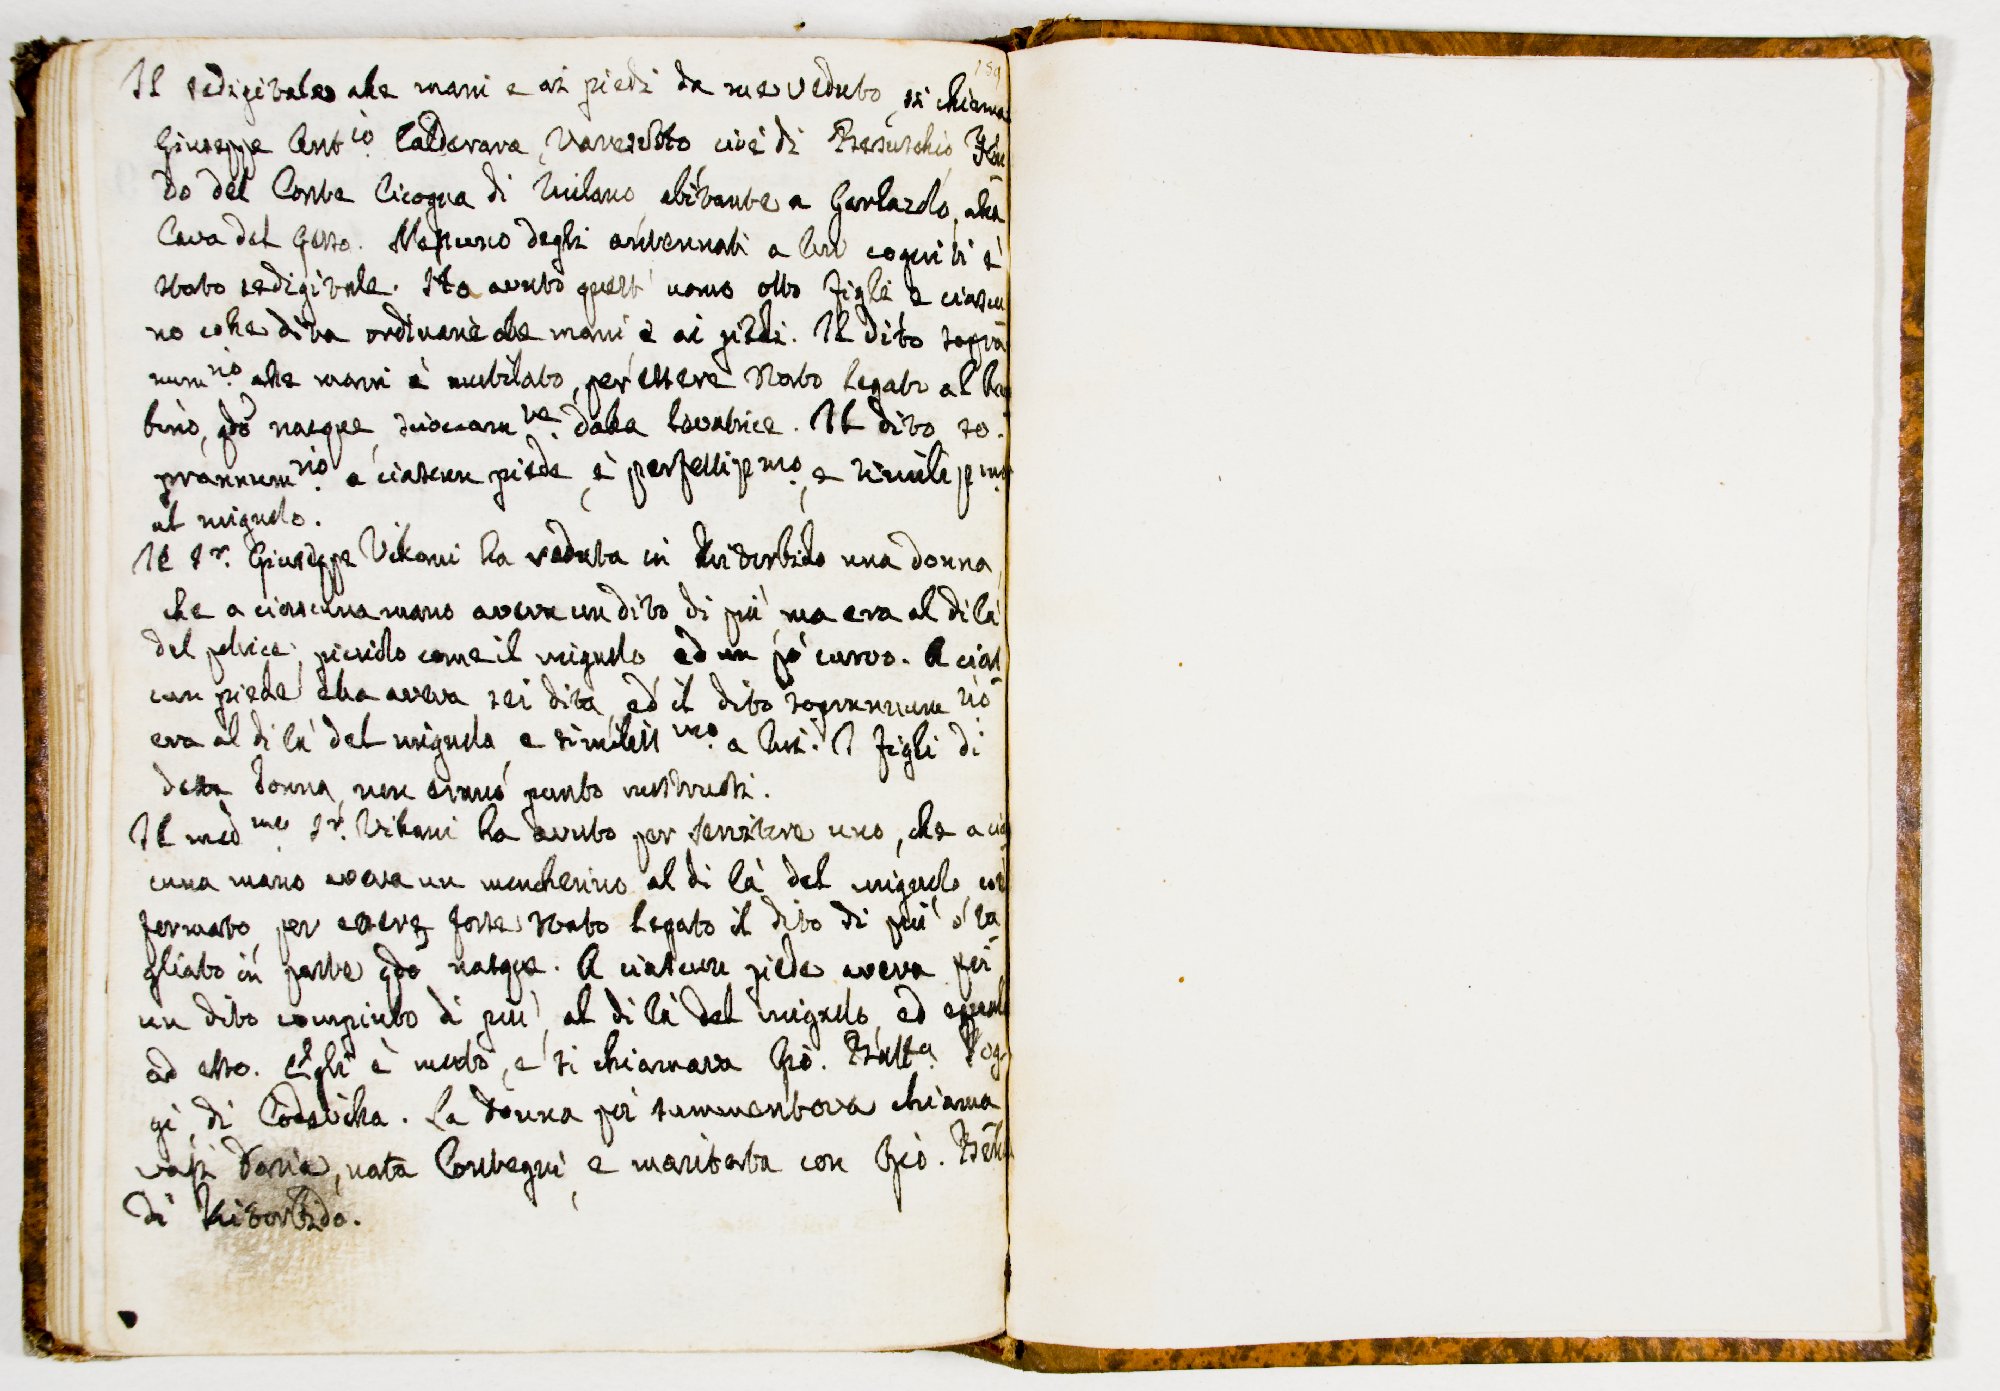 189
Il sedigitales alle mani e ai piedi da me veduto, si chiama
Giuseppe Ant.io Calderara, Varesotto cioè di Besuschio, Feu
do del Conte Cicogna di Milano, abitante a Garlazolo, alla
Cava del Gesso. Nessuno degli antennati a lui cogniti è
stato sedigitale. Ha avuto quest' uomo otto figli e ciascu
no colle dita ordinarie alle mani e ai piedi. Il dito sopra
num.rio alle mani è mutilato, per essere stato legato al bam
bino, qdo nacque, scioccam.te dalla levatrice. Il dito so
prannum.rio a ciascun piede, è perfettiss.mo, e similiss.mo
al mignolo.
Il Sr. Giuseppe Vitani ha veduta in Retorbido una donna,
che a ciascuna mano aveva un dito di più, ma era al di là
del pollice, picciolo come il mignolo ed un pò curvo. A cias
cun piede ella aveva sei dita, ed il dito soprannum.rio
era al di là del mignolo, e similiss.mo a lui. I figli di
detta donna, non erano punto mostruosi.
Il med.mo Sr. Vitani ha avuto per servitore uno, che a cias
cuna mano aveva un moncherino al di là del mignolo, così
formato, per essere forse stato legato il dito di più o ta
gliato in parte qdo nacque. A ciascun piede aveva poi
un dito compiuto di più, al di là del mignolo, ed eguale
ad esso. Egli è morto, e si chiamava Gio. Batt.a Pog
gi, di Codevilla. La donna poi summentova chiama
vasi Daria, nata Contegni, e maritata con Gio.
di Retorbido.